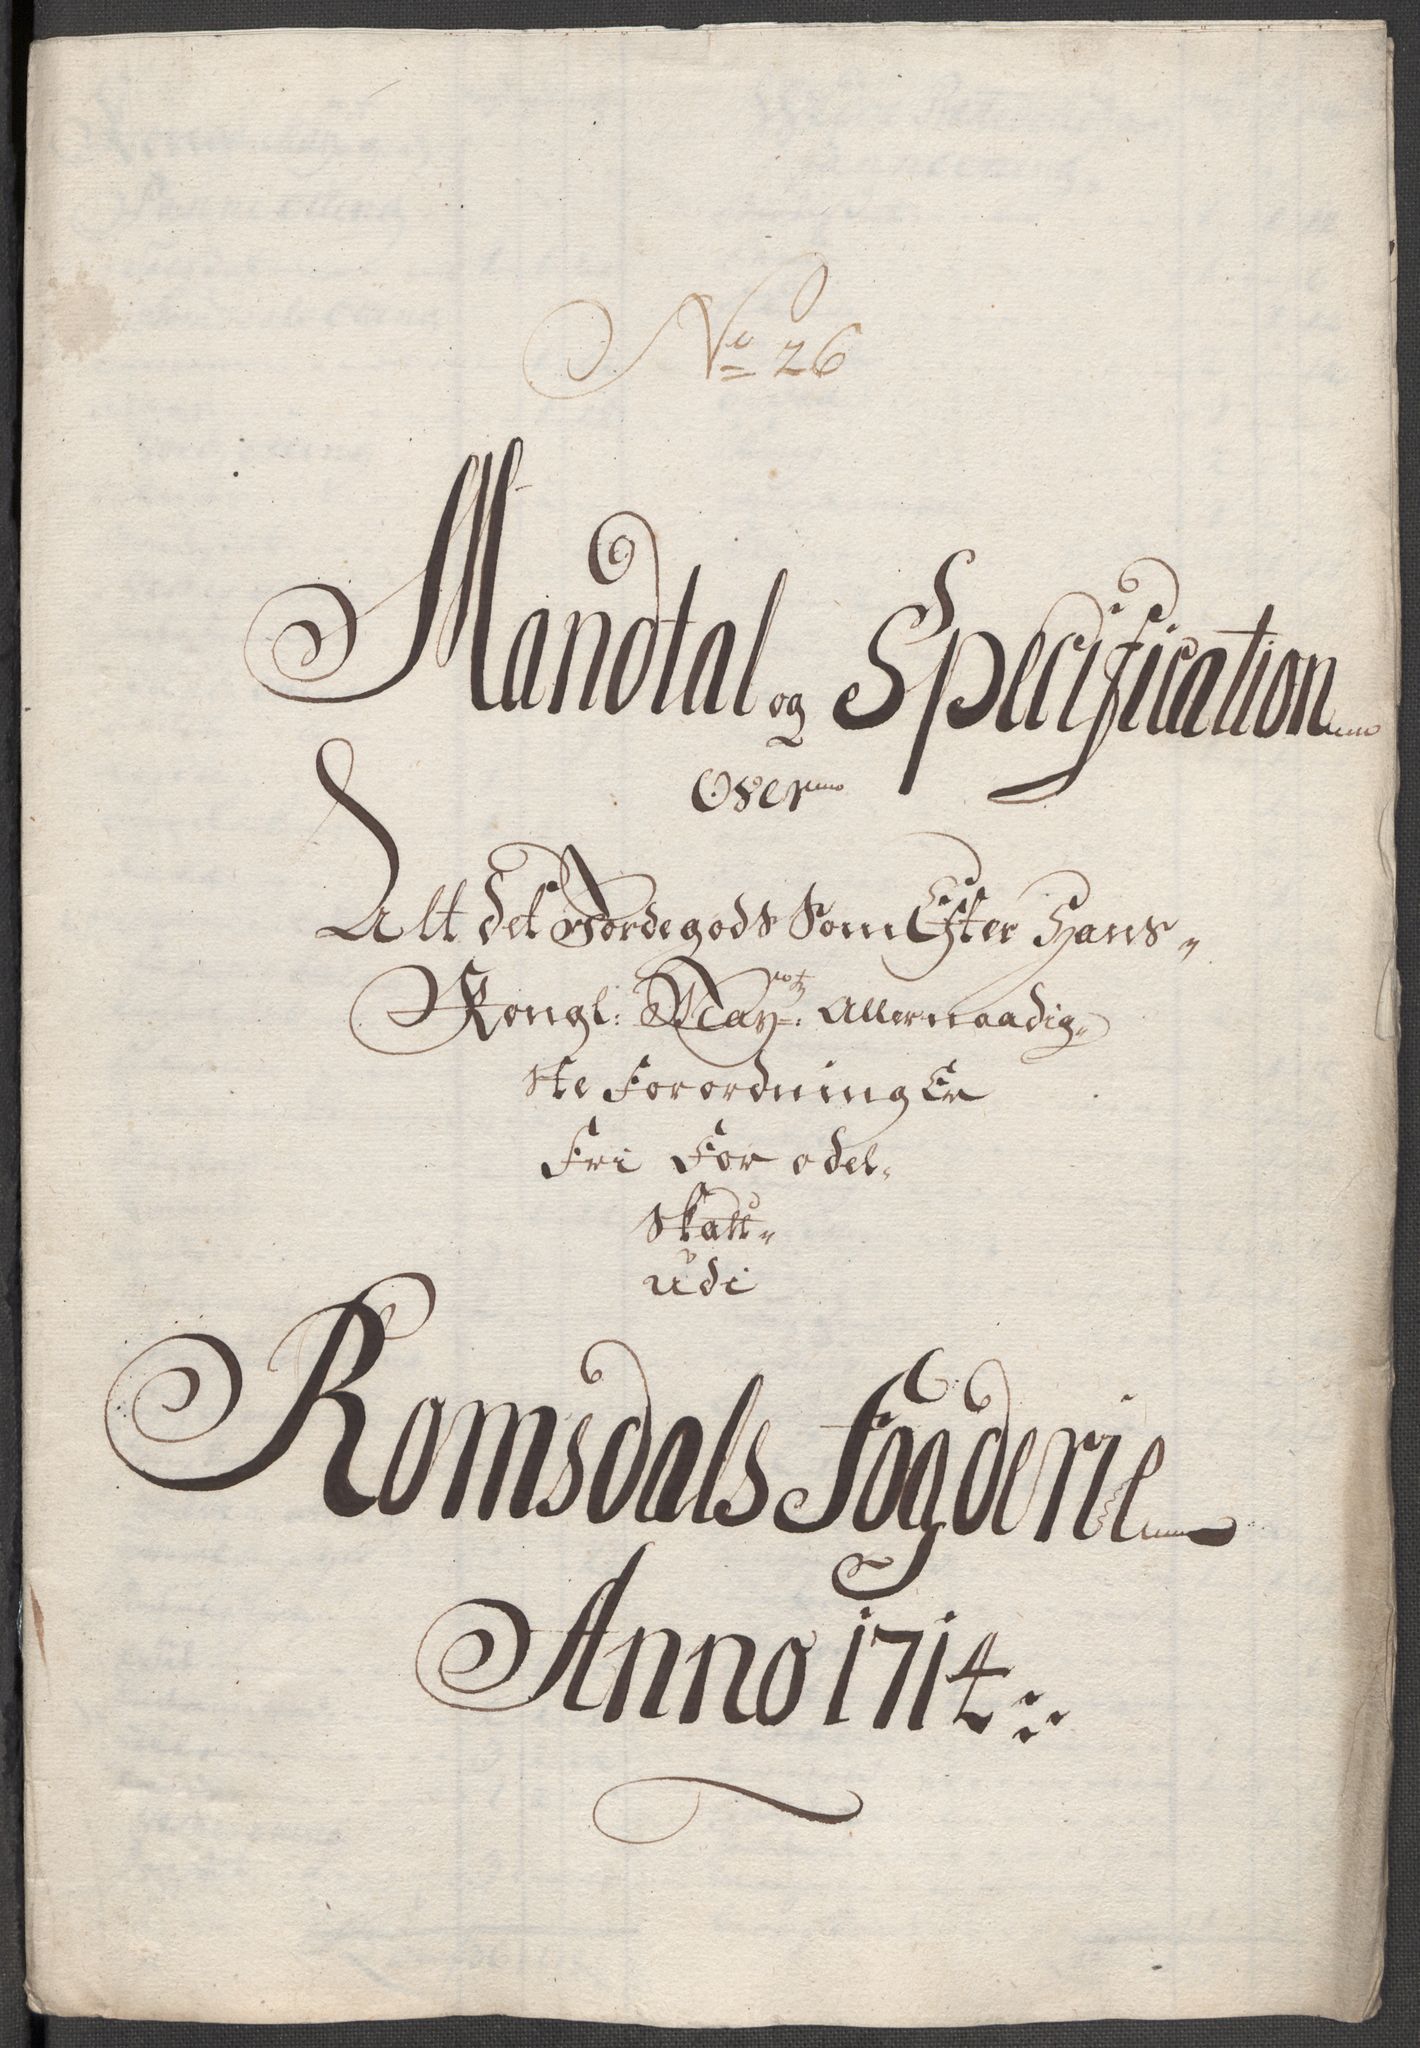 No 26
Mandtal og Specification
Over
Alt det Jordegods Som Efter Hans
Kongl: Mayts: Allernaadig-
ste Forordning Er
Fri For odel-
skatt
udi
Romsdals Fogderie
Anno 1714